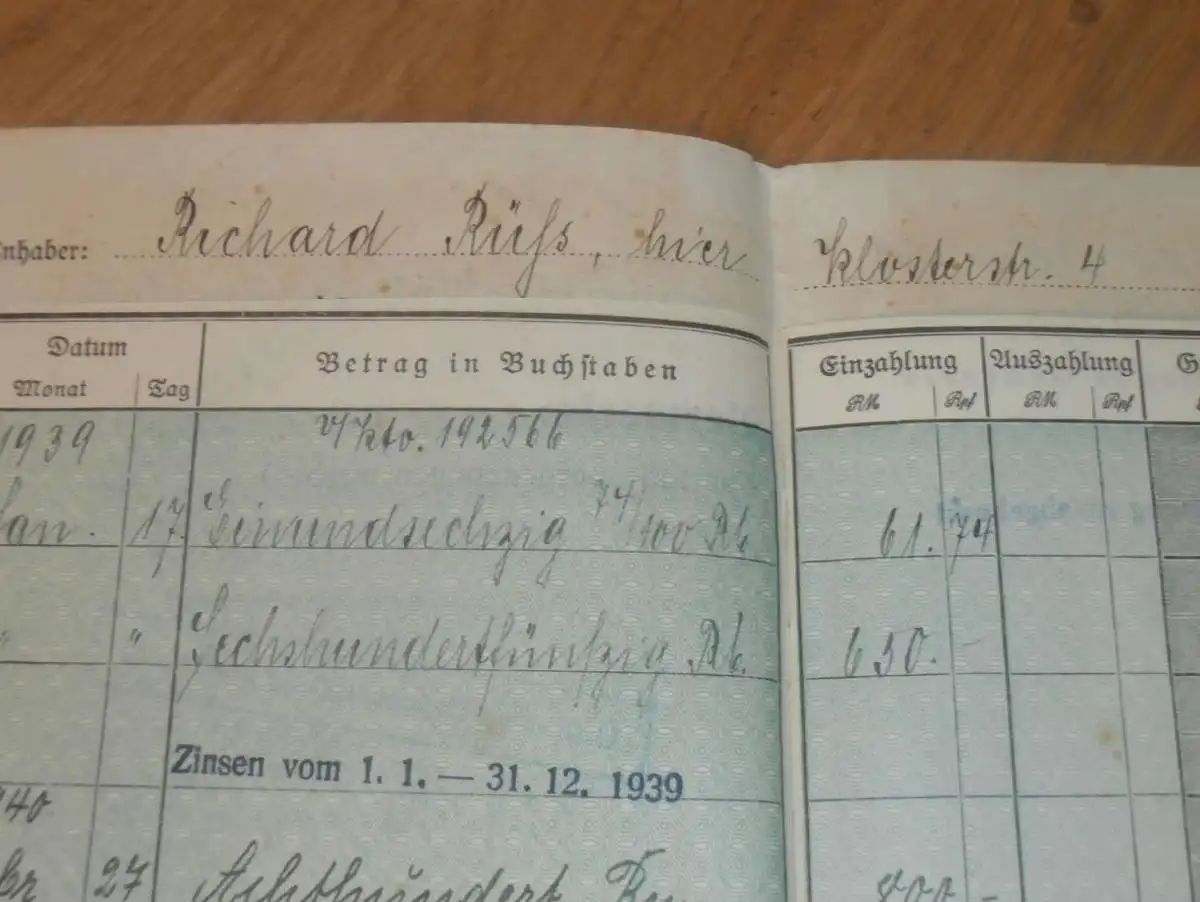 Inhaber: Richard Rüß, hier Klosterstr. 4
Datum Betrag in Buchstaben Einzahlung Auszahlung G
Monat Tag RM Rpf RM Rpf
1939 192566
Jan. 17. Einundsechzig 74/100 Rb 61.74
" " Sechshundertfünfzig Rb. 650. -
Zinsen vom 1. 1. — 31. 12. 1939
40
br 27 Achthundert 800 -